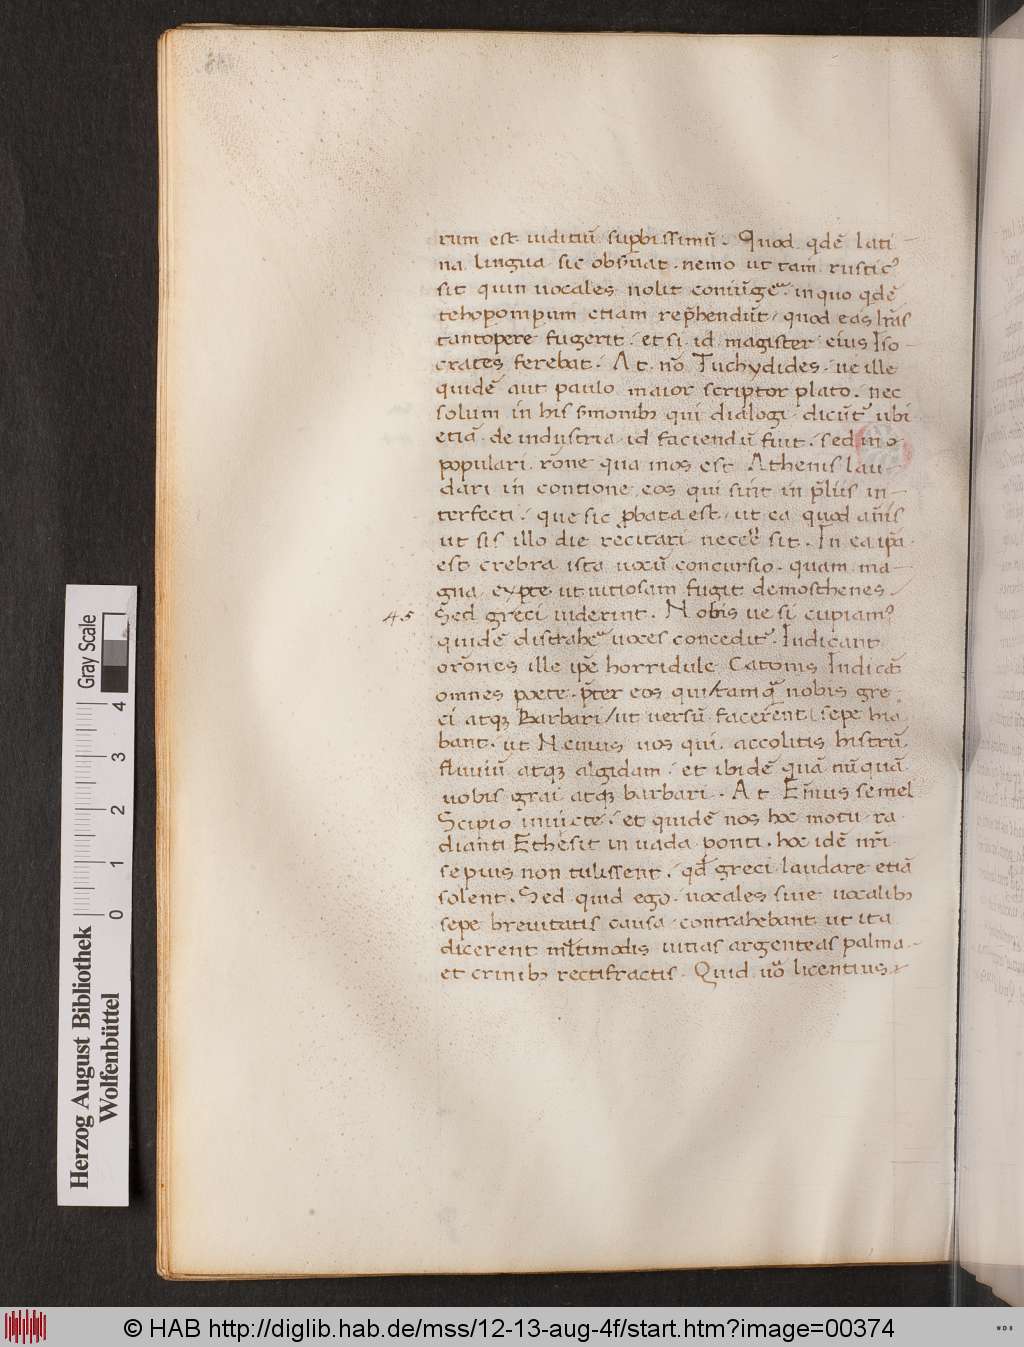 rum est iuditiū suꝑbissimū. Quod qdē lati
na lingua sic obs̄uat. nemo ut tam rusticꝰ
sit quin uocales nolit coniūgeʳ. in quo qdē
tehopompum etiam rep̄hendūt, quod eas lr̄as
tantopere fugerit. et si id magister eius Iso
crates ferebat. At nō Tuchydides. ue ille
quidē aut paulo maior scriptor plato. nec
solum in his s̄monibꝫ qui dialogi dicūtʳ ubi
etiā de industria id faciendū fuit. sed in o
populari rōne qua mos est Athenis lau-
dari in contione eos qui sint in p̄liis in-
terfecti. que sic ꝓbata est, ut ea quod an̄is
ut sis illo die recitari necee sit. In ea ip̄a
est crebra ista uocū concursio. quam ma-
gna exꝑte ut uitiosam fugit demosthenes.
45 Sed greci uiderint. Nobis ue si cupiamꝰ
quidē distraheʳ uoces conceditʳ. Indicant
orōnes ille ip̄e horridule Catonis Indicāt
omnes poete. p̄ter eos qui, tamqᷓ nobis gre
ci atqꝫ Barbari, ut uersū facerent, sepe hia
bant. ut Neuius uos qui accolitis histrū
fluuiū atqꝫ algidam. et ibidē quā nūquā
uobis grai atqꝫ barbari. At En̄ius semel
Scipio inuicte. et quidē nos hoc motu ra
dianti Ethesit in uada ponti. hoc idē nr̄i
sepius non tulissent. qd̄ greci laudare etiā
solent. Sed quid ego uocales siue uocalibꝫ
sepe breuitatis causa contrahebant ut ita
dicerent ml̄timodis uitias argenteas palma-
et crinibꝫ rectifractis. Quid uō licentius
Herzog August Bibliothek
Wolfenbüttel
Gray Scale
0 1 2 3 4
© HAB http://diglib.hab.de/mss/12-13-aug-4f/start.htm?image=00374